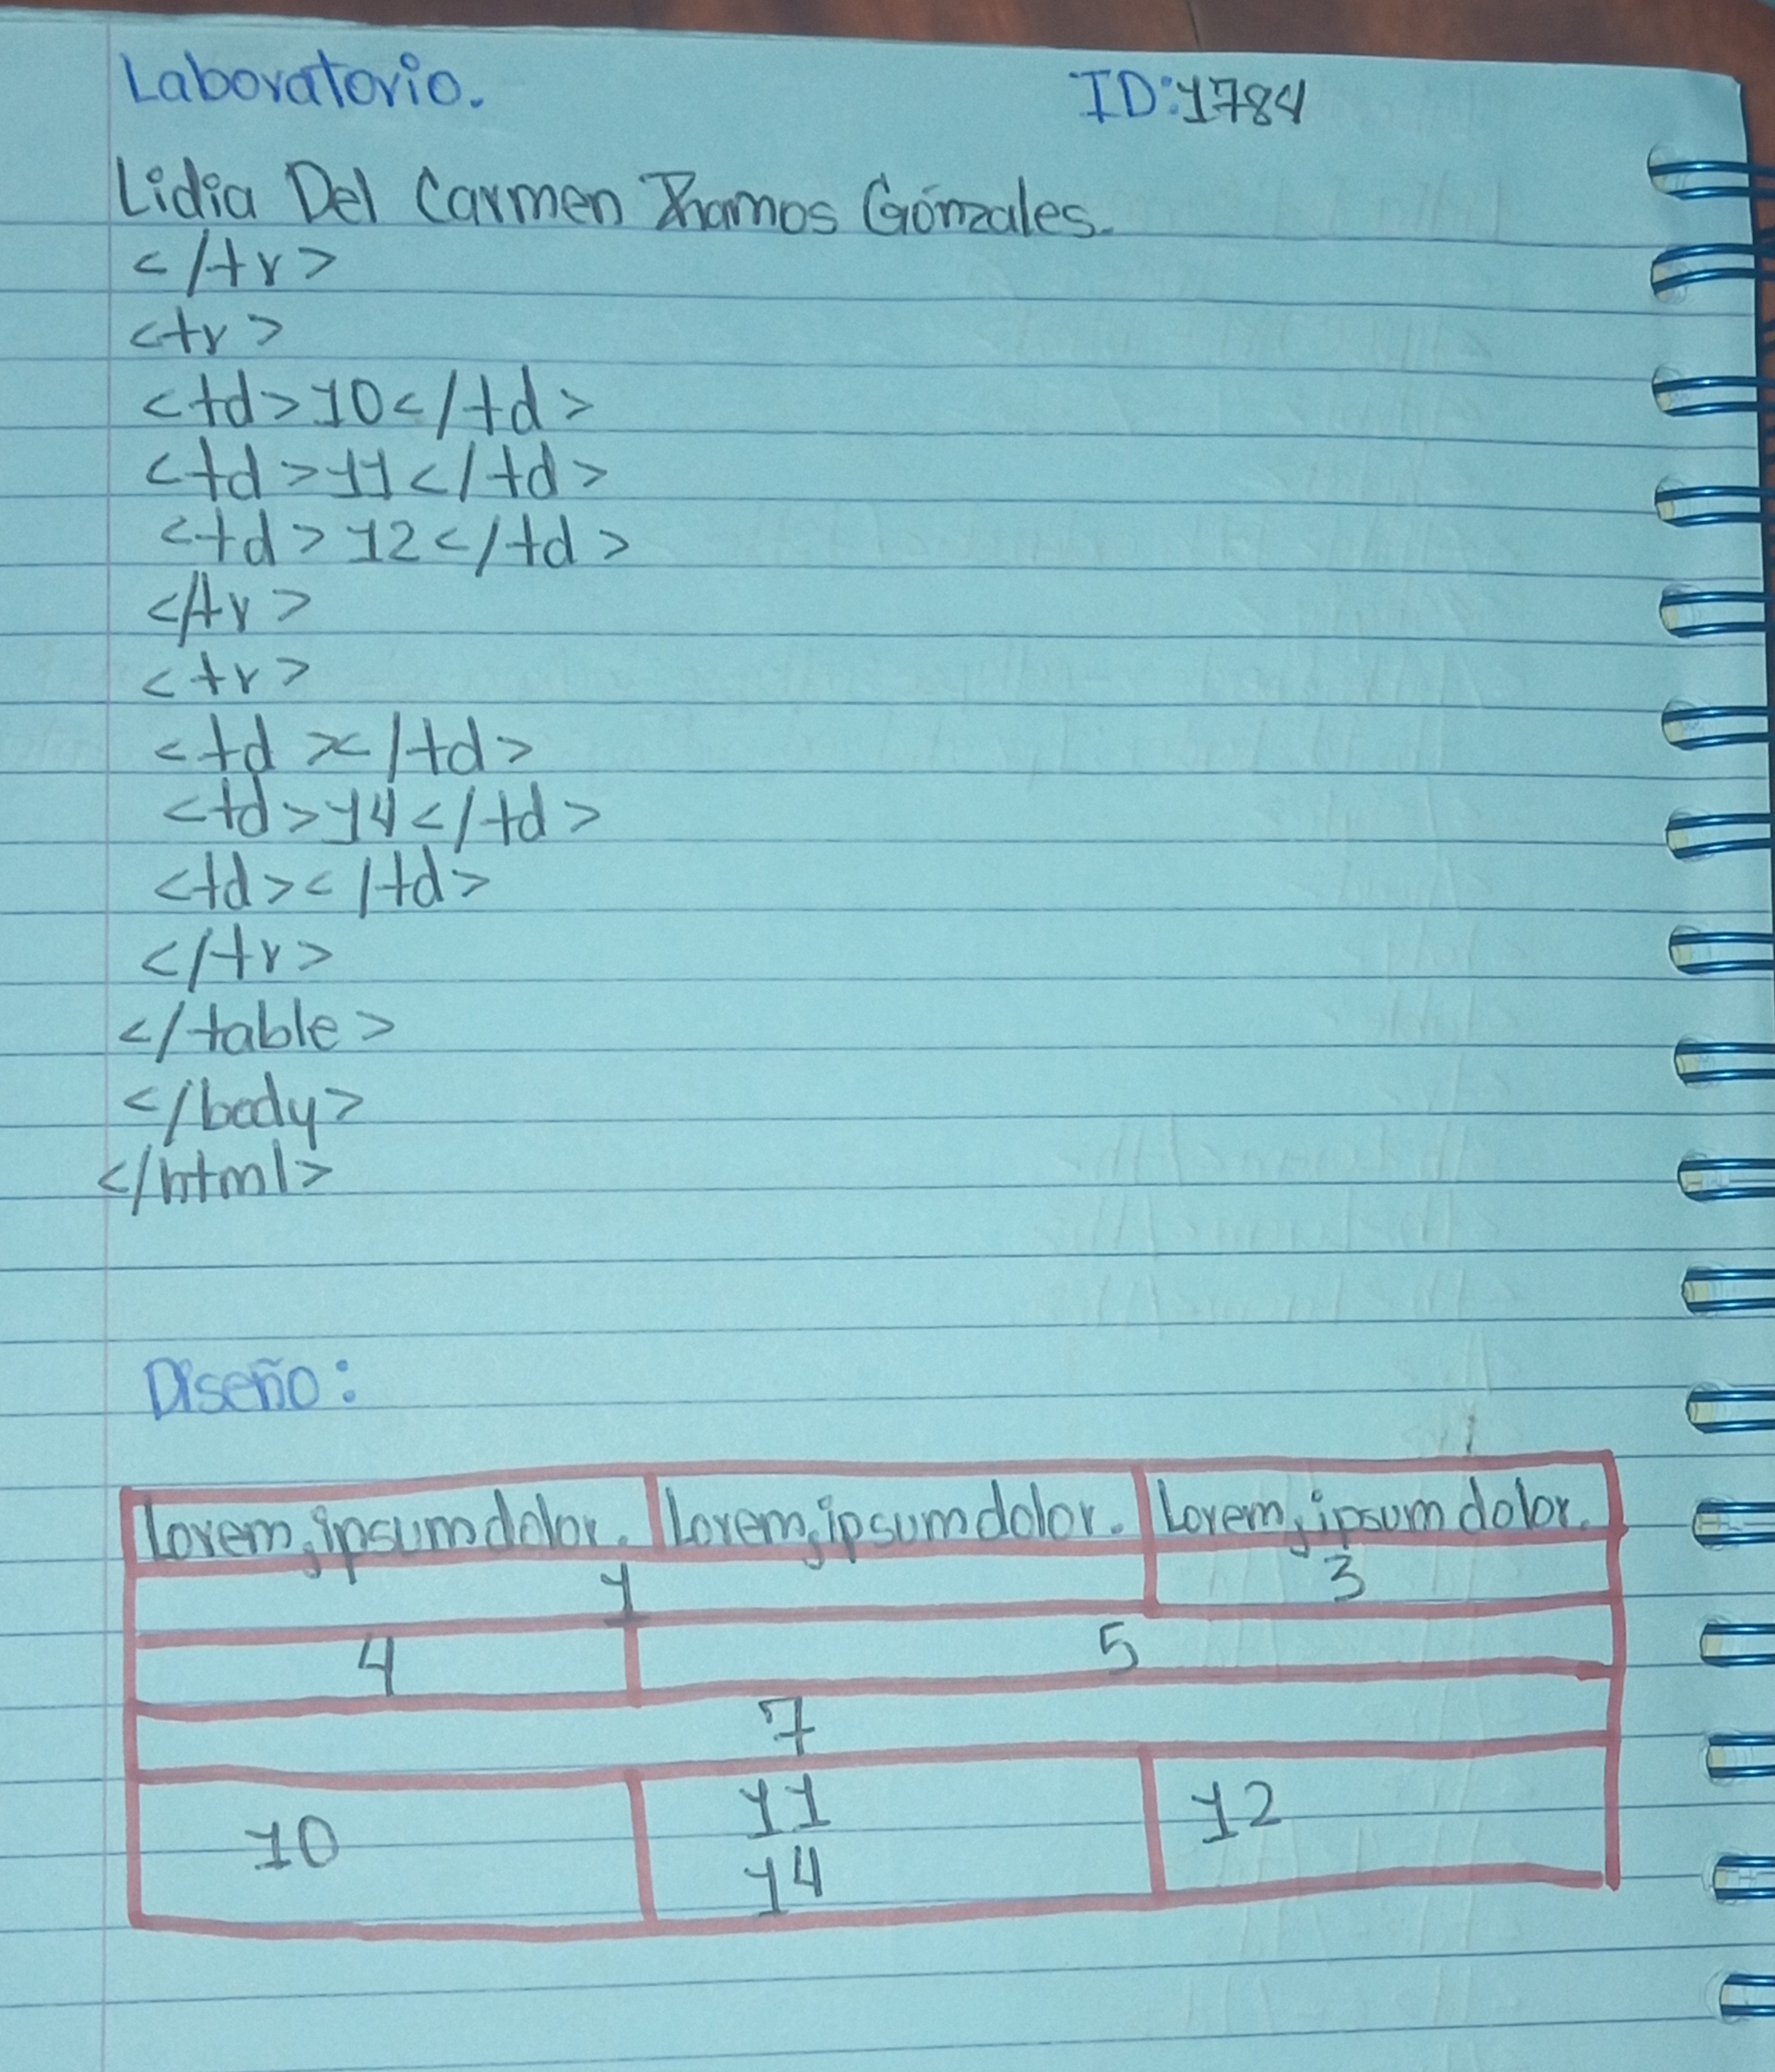 Laboratorio. ID:1784
Lidia Del Carmen Ramos Gónzales.
</tr>
<tr>
<td>10</td>
<td>11</td>
<td>12</td>
</tr>
<tr>
<td></td>
<td>14</td>
<td></td>
</tr>
</table>
</body>
</html>
Diseño:
Lorem, ipsum dolor. Lorem, ipsum dolor. Lorem, ipsum dolor.
1 3
4 5
7
10 11 12
14